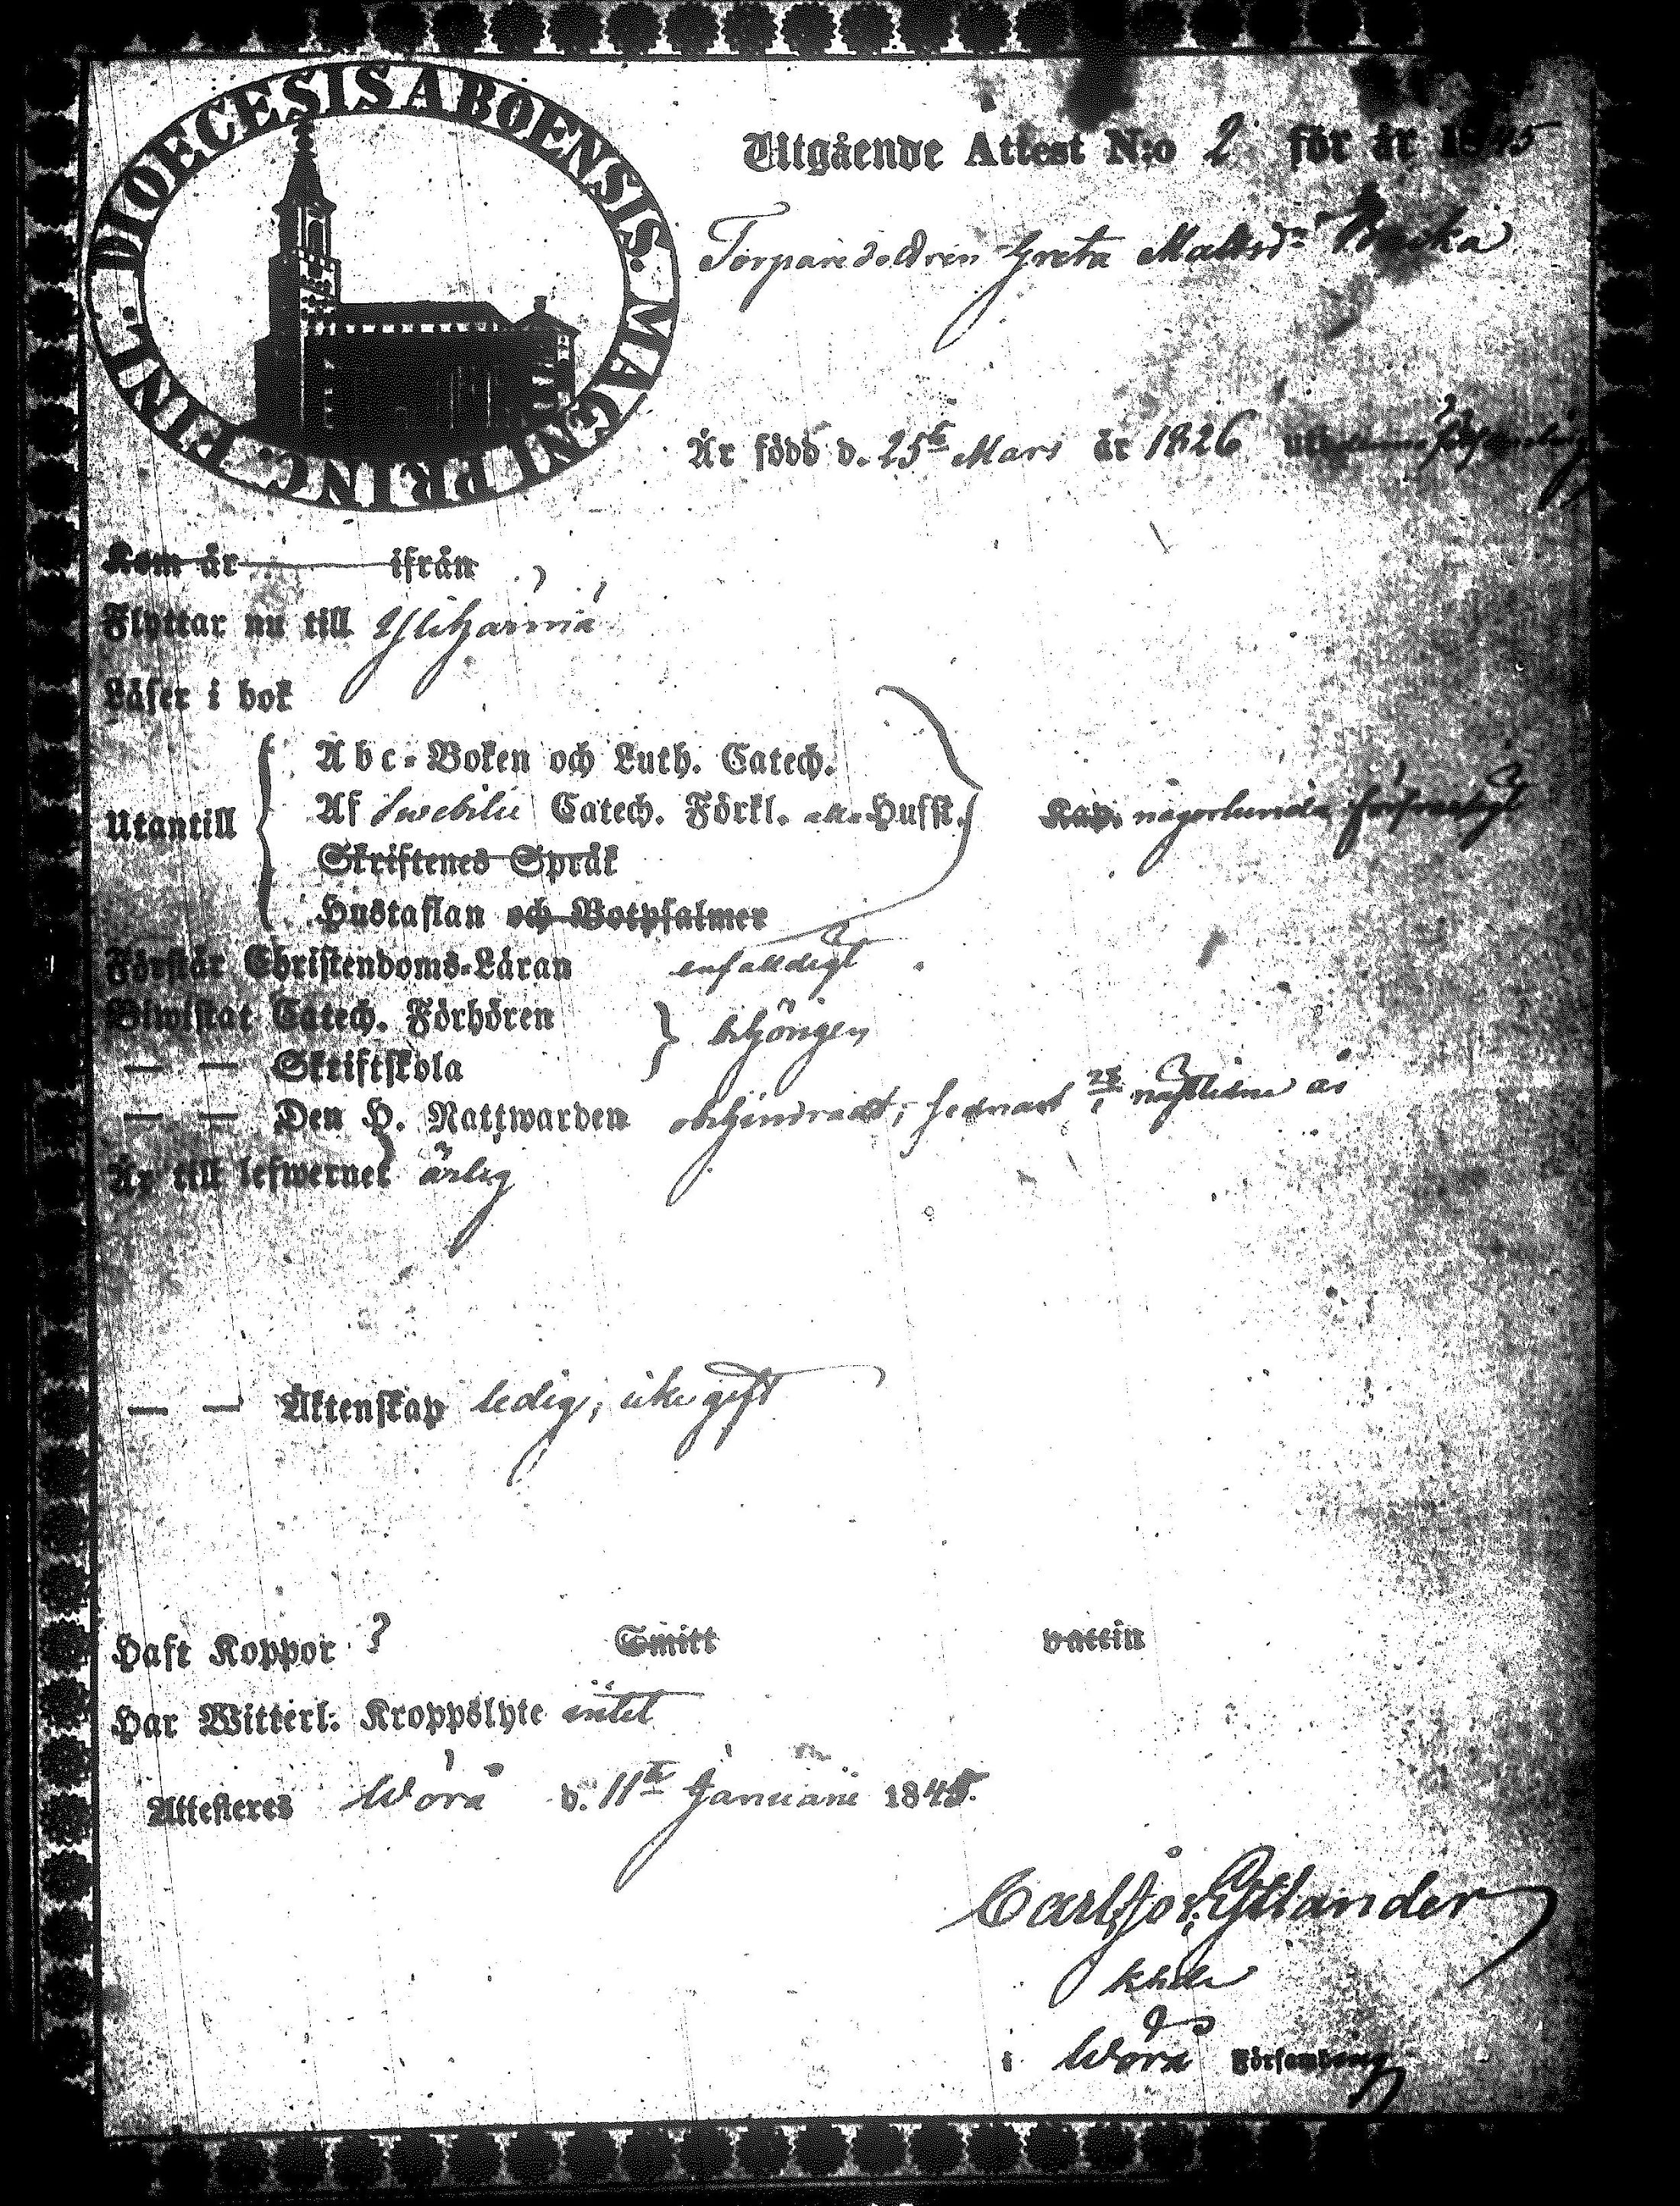 DIOECESIS ABOENSIS. MAGNI PRINC. FINL.
Utgående Attest N:o 2 för år 1845
Torparedottren Greta Mattsd:r Backa
Är född d. 25te Mars år 1826
Kom år ifrån
Flyttar nu till Ylihärmä
Läser i bok
Utantill
Abc-Boken och Luth. Catech.
Af Swebilii Catech. Förkl. Husst.
Skriftenes Språk
Hustaflan och Botpsalmer
någorlunda försvarligt
Förstår Christendoms-Läran enfaldigt
Biwistat Catech. Förhören
— — Skriftskola
behörigen
— — Den H. Nattwarden obehindradt, sednast nästledne år
Är till lefwernet ärlig
— — Äktenskap ledig, icke gift
Haft Koppor ? Smitt vattin
Har Witterl: Kroppslyte intet
Attesteres Wörå d. 11te Januarii 1845.
Carl
khde
i Wörå Församling